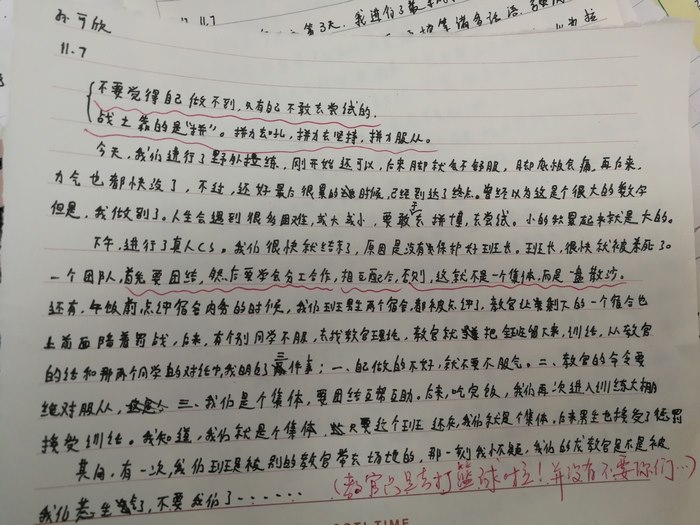 11.7
第3天，我进行了
孙可欣
11.7
不要觉得自己做不到，只有自己不敢去尝试的，
战士靠的是"拼"。拼力去吃，拼力去坚持，拼力服从。
今天，我们进行了野外拉练，刚开始还可以，后来脚就会不舒服，脚底板会痛，再后来，
力气也都快没了，不过，还好最后很累的时候，已经到达了终点。曾经以为这是个很大的数字
但是，我做到了。人生会遇到很多困难，或大或小，要敢于拼搏，去尝试。小的积累起来就是大的。
下午，进行了真人CS。我们很快就结束了，原因是没有来保护好班长。班长，很快就被杀死了。
一个团队，首先要团结，然后要学会分工合作，相互配合，否则，这就不是一个集体，而是一盘散沙。
还有，午饭前点评宿舍内务的时候，我们班男生两个宿舍，都被点评了，教官让剩下的一个宿舍也
上前面陪着罚战，后来，有个别同学不服，去找教官理论，教官就把全班留下来，训练，从教官
的话和那两个同学的对话中，我明白了三件事：一、自己做的不好，就不要不服气。二、教官的命令要
绝对服从，三、我们是个集体，要团结互帮互助。后来，吃完饭，我们再次进入训练大棚
接受训练。我知道，我们就是个集体，只要这个班还在，我们就是个集体。后来男生也接受了惩罚
其间，有一次，我们班是被别的教官带去场地的，那一刻我怀疑，我们的龙教官是不是被
我们惹生气了，不要我们了……
（教官只是去打篮球时至！并没有不要你们…）